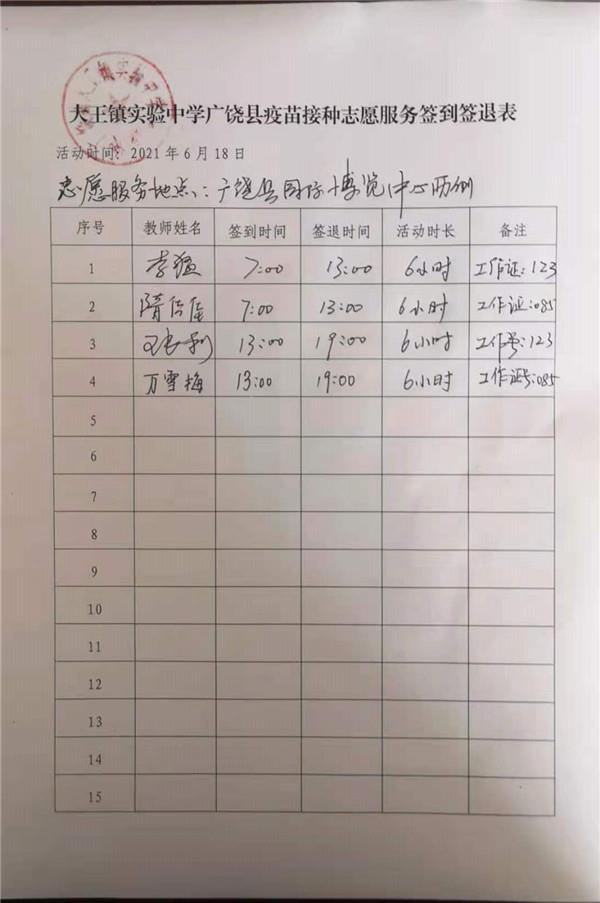 大王镇实验中学广饶县疫苗接种志愿服务签到签退表
活动时间：2021 年 6 月 18 日
志愿服务地点：广饶县国际博览中心西侧
序号 教师姓名 签到时间 签退时间 活动时长 备注
1 李猛 7:00 13:00 6小时 工作证:123
2 隋倍佳 7:00 13:00 6小时 工作证:085
3 13:00 19:00 6小时 工作号:123
4 万雪梅 13:00 19:00 6小时 工作证号:085
5
6
7
8
9
10
11
12
13
14
15